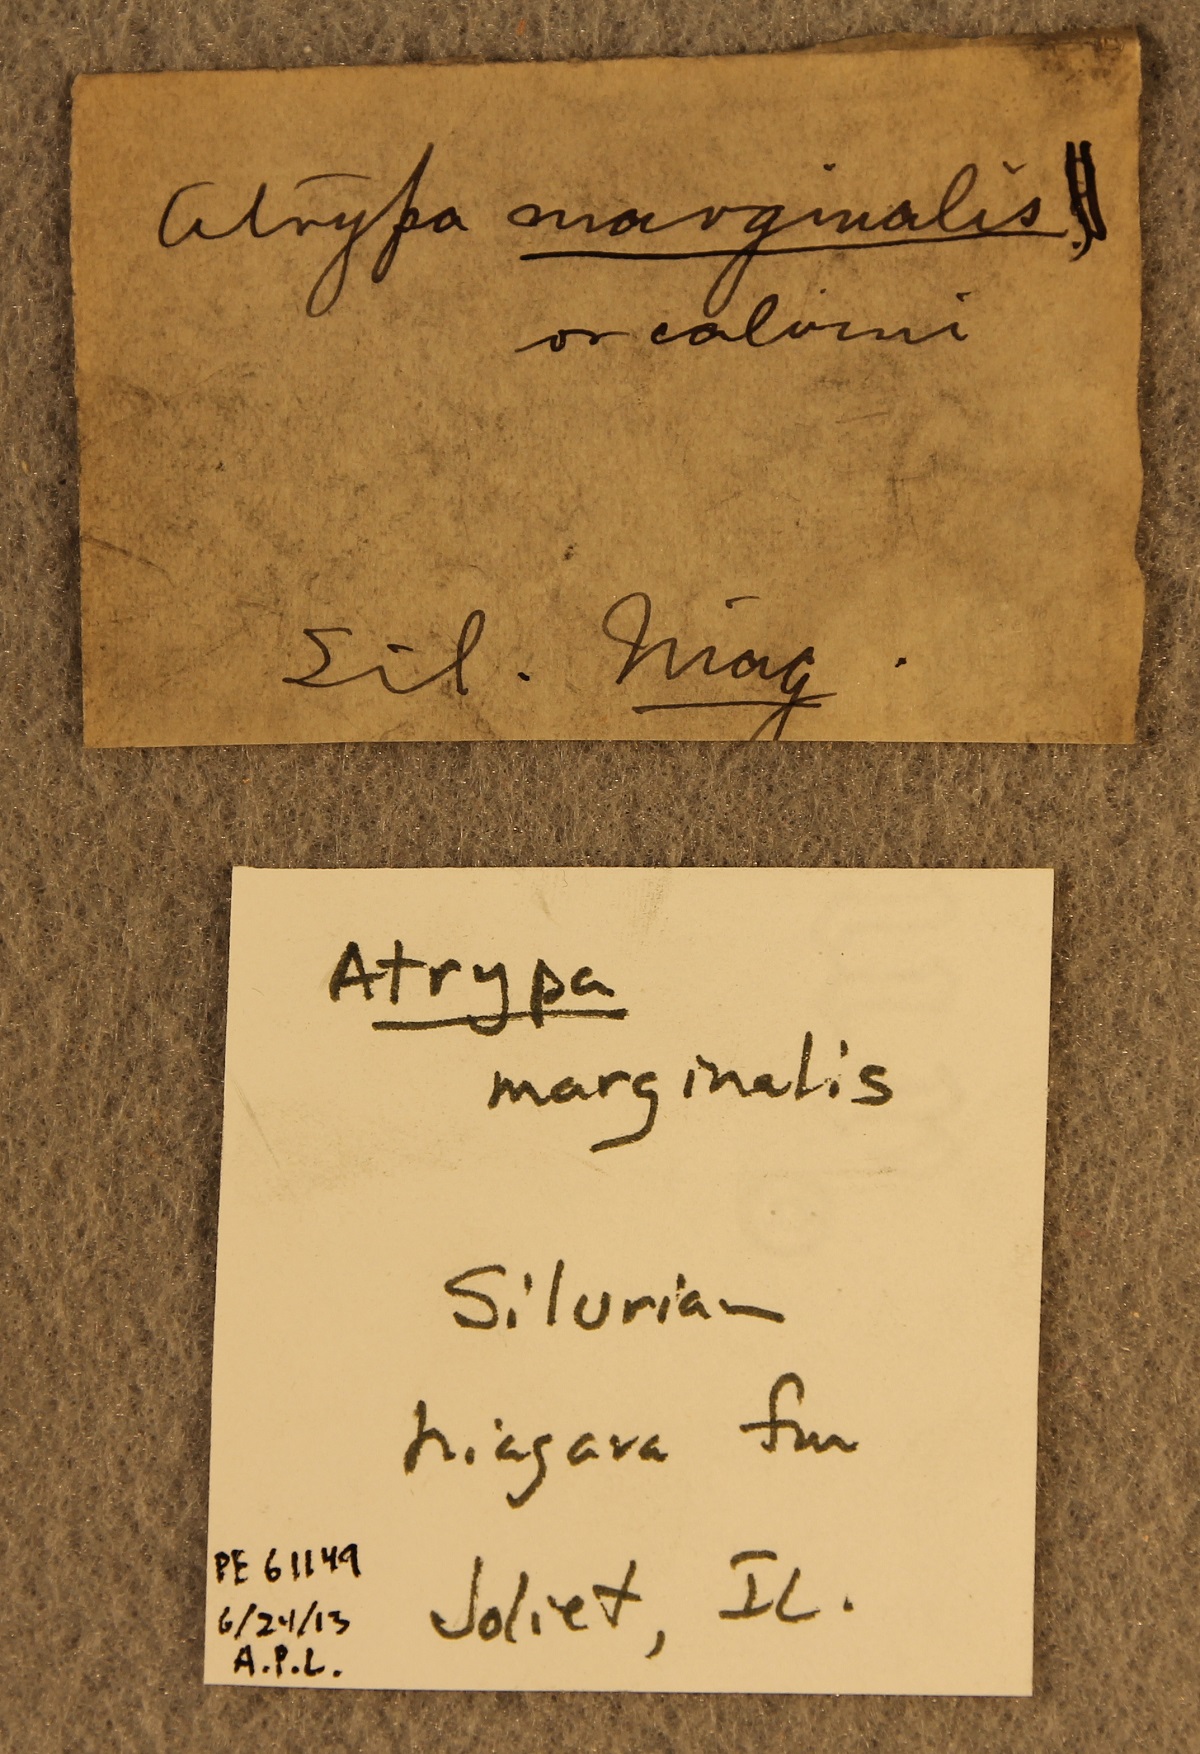 Atrypa marginalis
or calvini
Sil. Niag.
Atrypa
marginalis
Silurian
Niagara fm
Joliet, IL.
PE 61149
6/24/13
A.P.L.